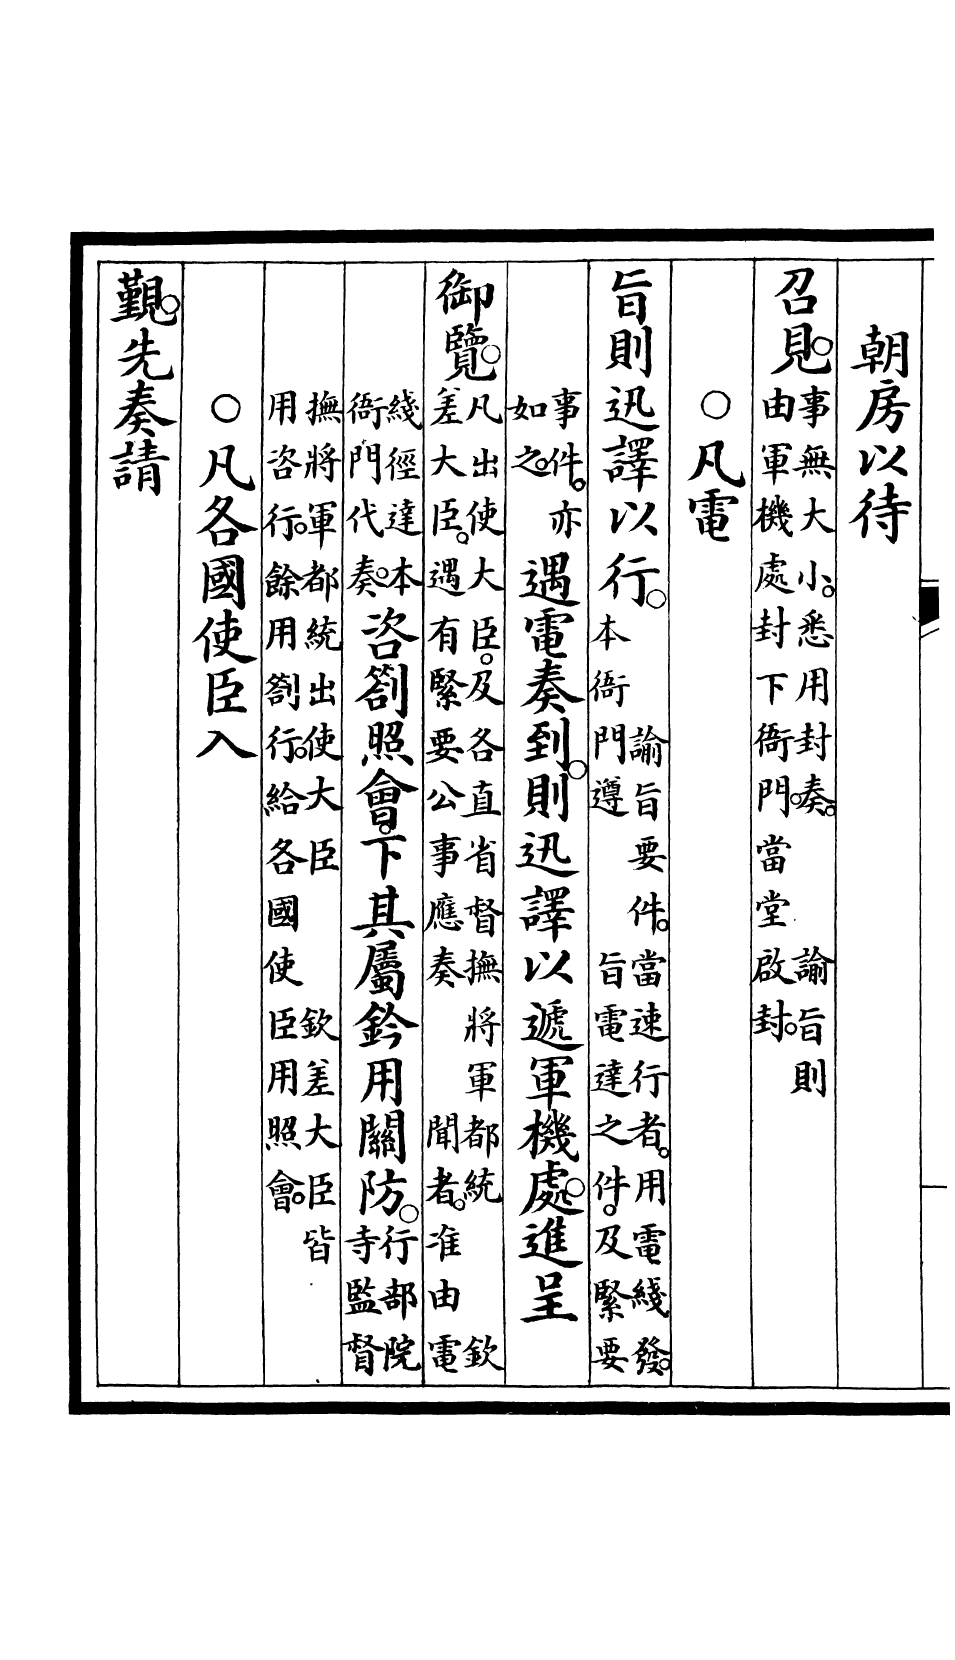 朝房以待
召見。
事無大小。悉用封奏。諭旨則
由軍機處封下衙門。當堂啟封。
○凡電
旨則迅譯以行。
諭旨要件。當速行者。用電綫發。
本衙門遵 旨電達之件。及緊要
事件。亦
如之。
遇電奏到。則迅譯以遞軍機處。進呈
御覽。
凡出使大臣。及各直省督撫將軍都統 欽
差大臣。遇有緊要公事應奏 聞者。准由電
綫徑達本
衙門代奏。
咨劄照會。下其屬鈐用關防。
行部院
寺監督
撫將軍都統出使大臣 欽差大臣皆
用咨行。餘用劄行。給各國使臣用照會。
○凡各國使臣入
覲。先奏請